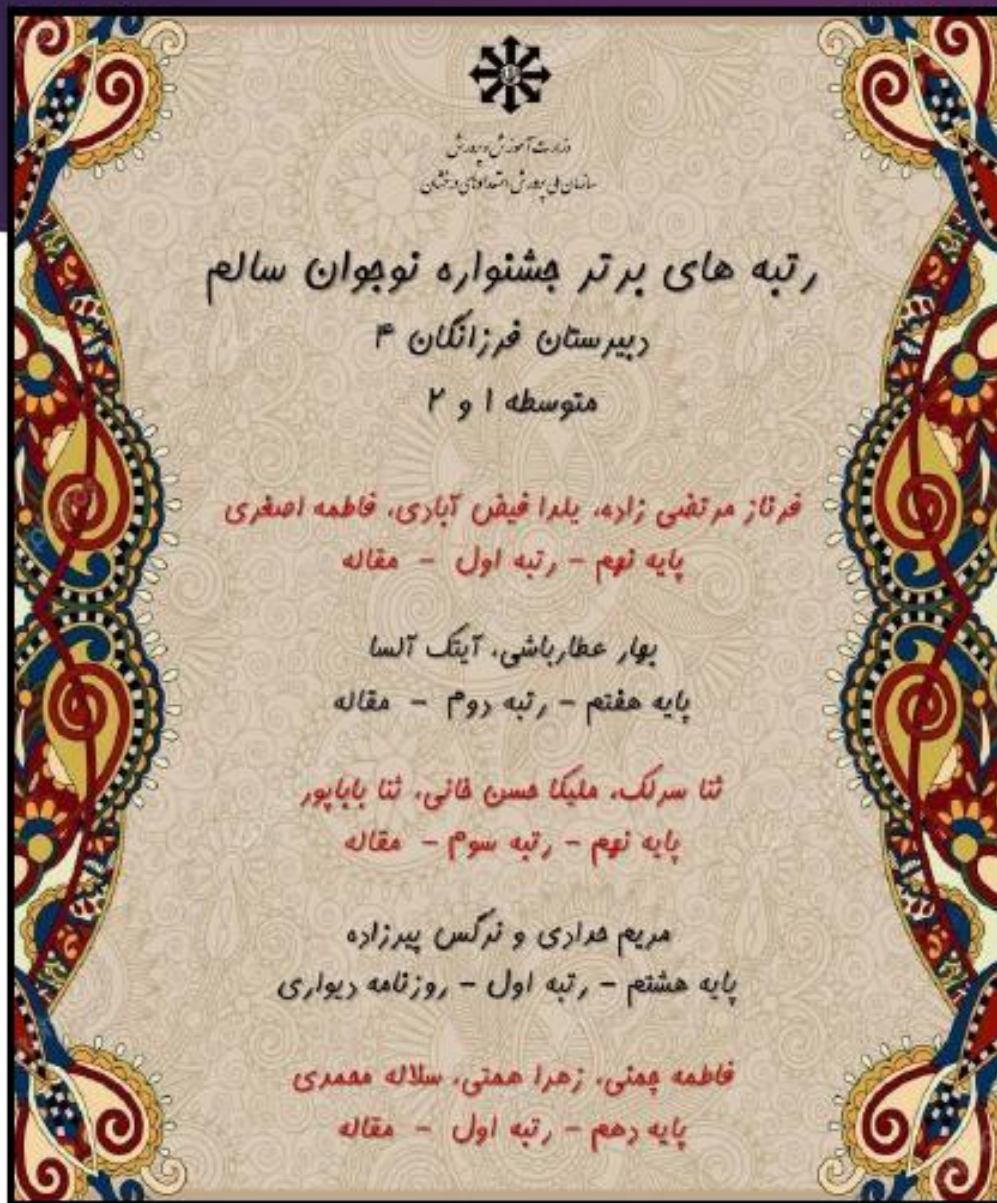 وزارت آموزش و پرورش
سازمان ملی پرورش استعدادهای درخشان
رتبه های برتر جشنواره نوجوان سالم
دبیرستان فرزانگان ۴
متوسطه ۱ و ۲
فرناز مرتضی زاده، یلدا فیض آبادی، فاطمه اصغری
پایه نهم - رتبه اول - مقاله
بهار عطارباشی، آیتک آلسا
پایه هفتم - رتبه دوم - مقاله
ثنا سرلک، ملیکا حسن خانی، ثنا باباپور
پایه نهم - رتبه سوم - مقاله
مریم حدادی و نرگس پیرزاده
پایه هشتم - رتبه اول - روزنامه دیواری
فاطمه چمنی، زهرا همتی، سلاله محمدی
پایه دهم - رتبه اول - مقاله